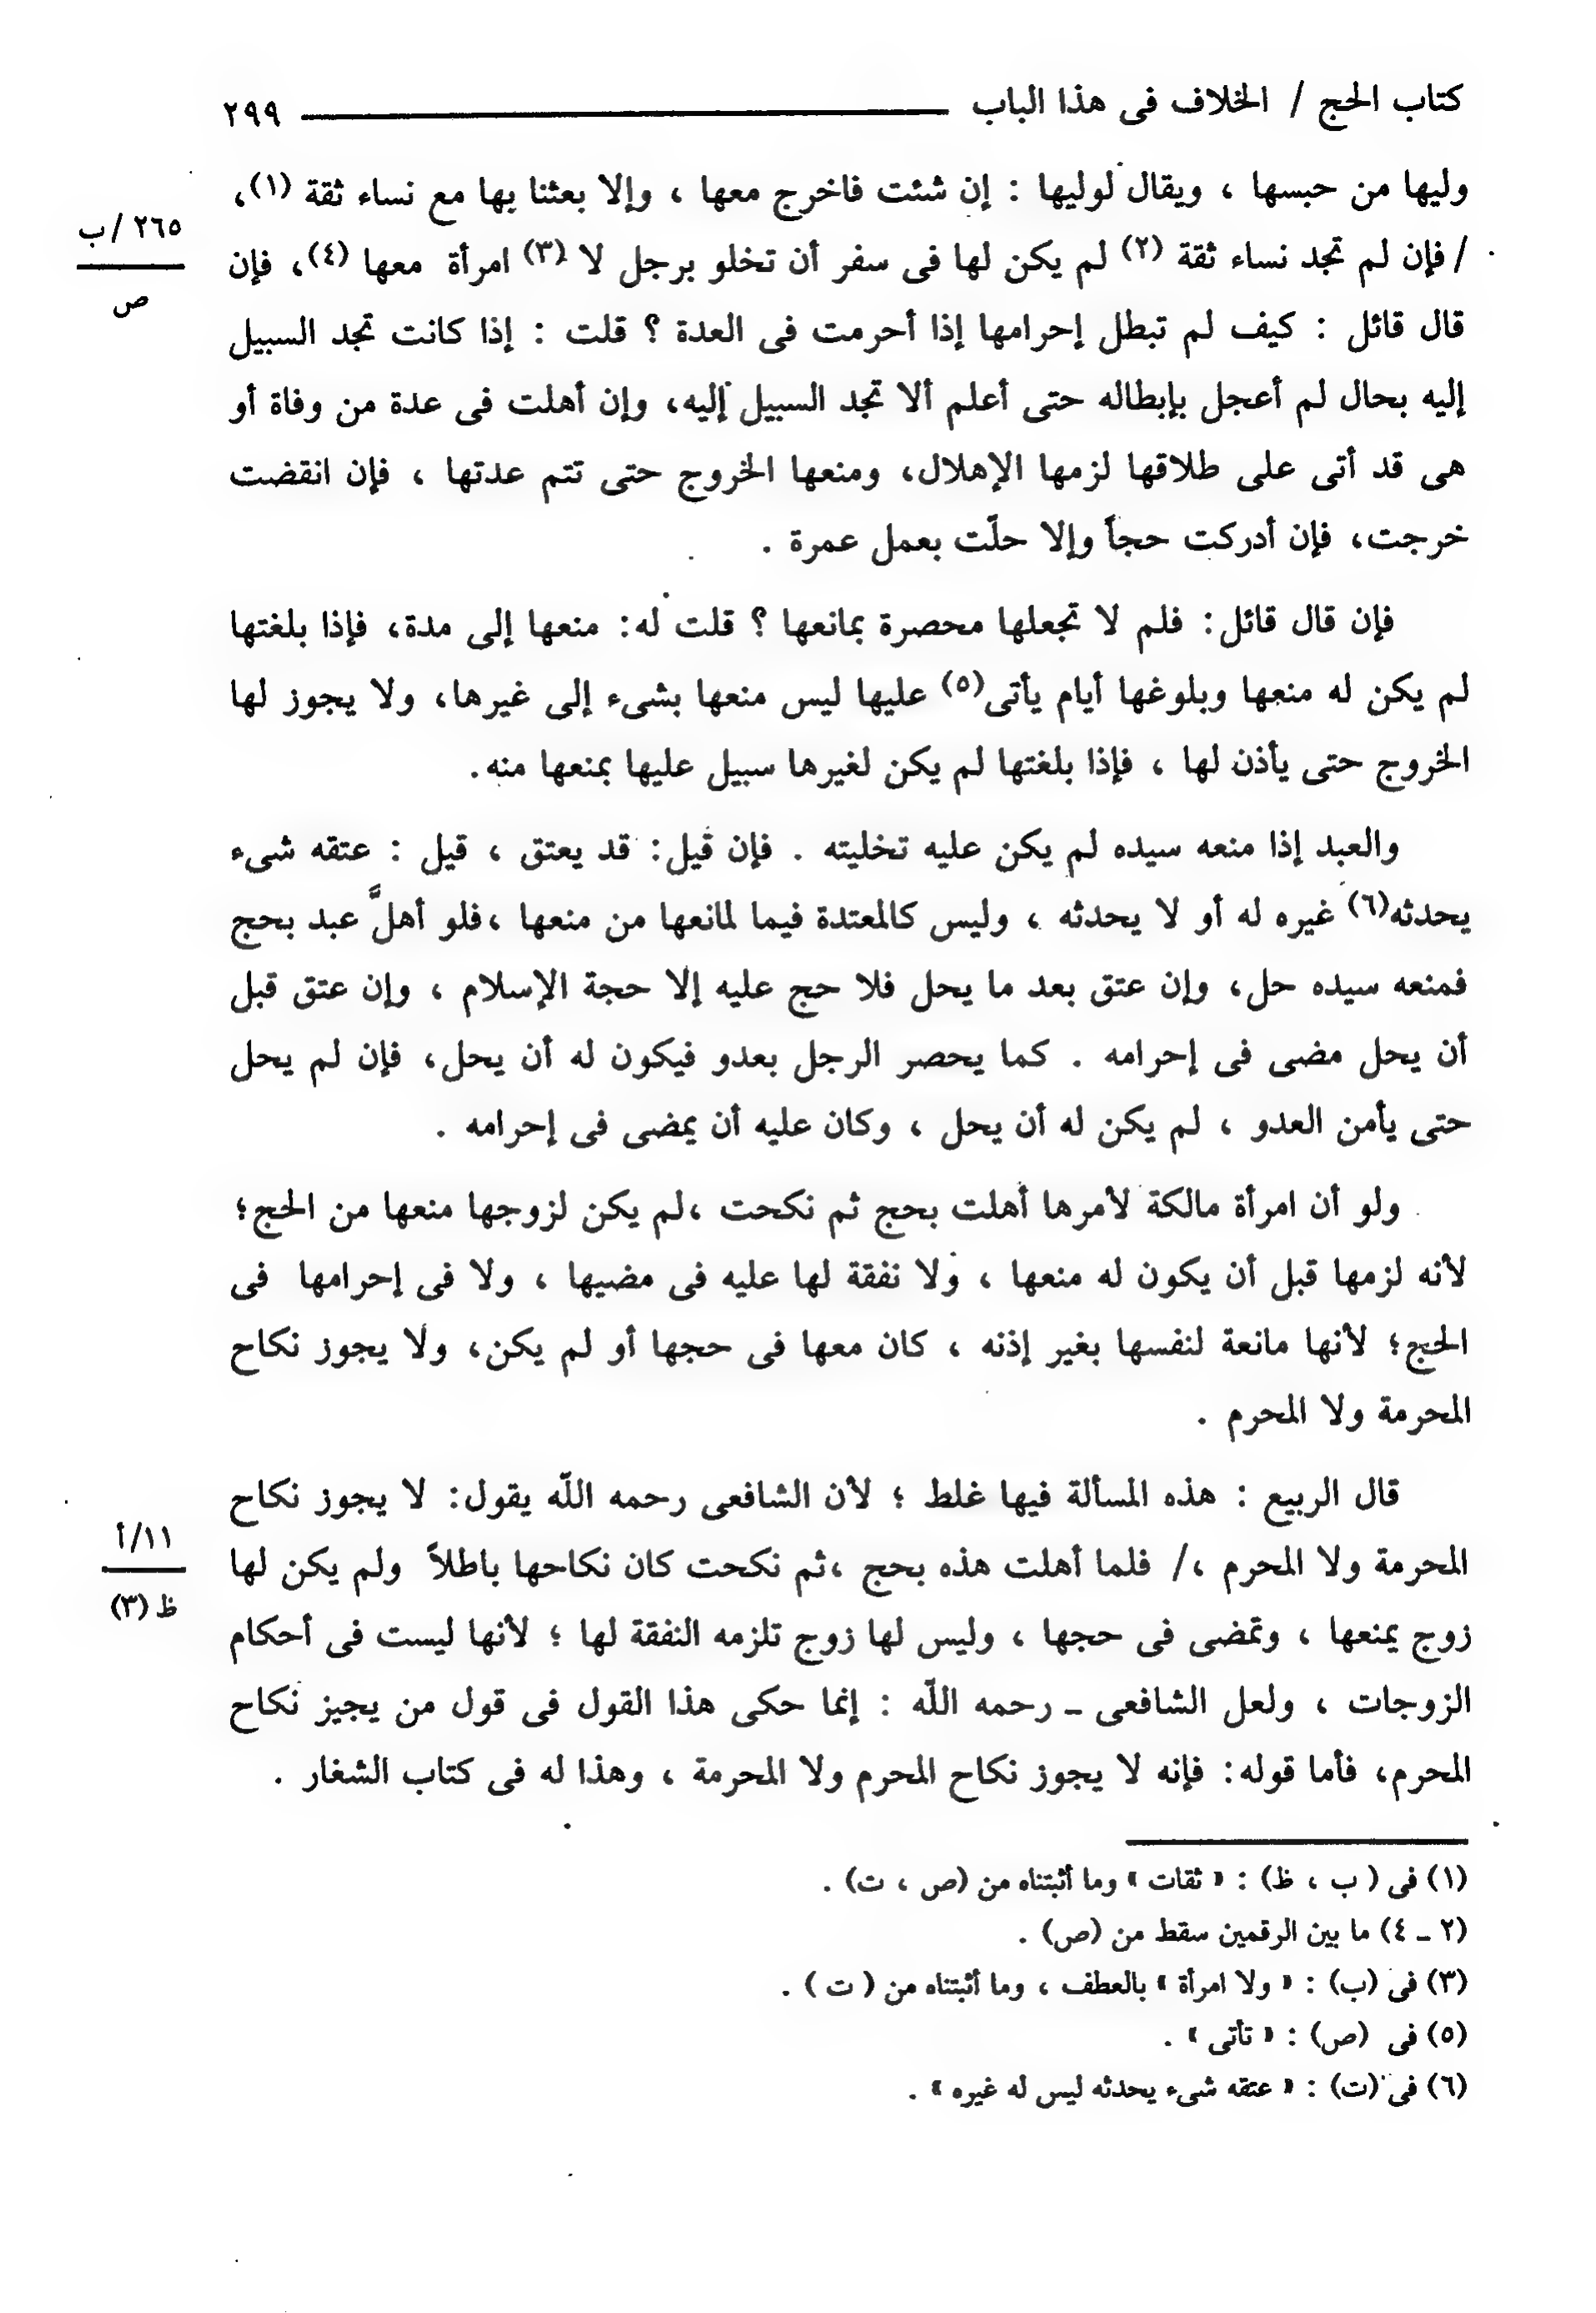 كتاب الحج / الخلاف فى هذا الباب ٢٩٩
وليها من حبسها ، ويقال لوليها : إن شئت فاخرج معها ، وإلا بعثنا بها مع نساء ثقة (١)،
٢٦٥ /ب
ص
/ فإن لم تجد نساء ثقة (٢) لم يكن لها فى سفر أن تخلو برجل لا (٣) امرأة معها (٤)، فإن
قال قائل : كيف لم تبطل إحرامها إذا أحرمت فى العدة ؟ قلت : إذا كانت تجد السبيل
إليه بحال لم أعجل بإبطاله حتى أعلم ألا تجد السبيل إليه، وإن أهلت فى عدة من وفاة أو
هى قد أتى على طلاقها لزمها الإهلال، ومنعها الخروج حتى تتم عدتها ، فإن انقضت
خرجت، فإن أدركت حجاً وإلا حلّت بعمل عمرة .
فإن قال قائل: فلم لا تجعلها محصرة بمانعها ؟ قلت له: منعها إلى مدة، فإذا بلغتها
لم يكن له منعها وبلوغها أيام يأتى(٥) عليها ليس منعها بشىء إلى غيرها، ولا يجوز لها
الخروج حتى يأذن لها ، فإذا بلغتها لم يكن لغيرها سبيل عليها بمنعها منه.
والعبد إذا منعه سيده لم يكن عليه تخليته . فإن قيل: قد يعتق ، قيل : عتقه شىء
يحدثه(٦) غيره له أو لا يحدثه ، وليس كالمعتدة فيما لمانعها من منعها ،فلو أهلَّ عبد بحج
فمنعه سيده حل، وإن عتق بعد ما يحل فلا حج عليه إلا حجة الإسلام ، وإن عتق قبل
أن يحل مضى فى إحرامه . كما يحصر الرجل بعدو فيكون له أن يحل، فإن لم يحل
حتى يأمن العدو ، لم يكن له أن يحل ، وكان عليه أن يمضى فى إحرامه .
ولو أن امرأة مالكة لأمرها أهلت بحج ثم نكحت ،لم يكن لزوجها منعها من الحج؛
لأنه لزمها قبل أن يكون له منعها ، ولا نفقة لها عليه فى مضيها ، ولا فى إحرامها فى
الحج؛ لأنها مانعة لنفسها بغير إذنه ، كان معها فى حجها أو لم يكن، ولا يجوز نكاح
المحرمة ولا المحرم .
قال الربيع : هذه المسألة فيها غلط ؛ لأن الشافعى رحمه اللّه يقول: لا يجوز نكاح
١١/أ
ظ (٣)
المحرمة ولا المحرم ،/ فلما أهلت هذه بحج ،ثم نكحت كان نكاحها باطلاً ولم يكن لها
زوج يمنعها ، وتمضى فى حجها ، وليس لها زوج تلزمه النفقة لها ؛ لأنها ليست فى أحكام
الزوجات ، ولعل الشافعى ـ رحمه اللّه : إنما حكى هذا القول فى قول من يجيز نكاح
المحرم، فأما قوله: فإنه لا يجوز نكاح المحرم ولا المحرمة ، وهذا له فى كتاب الشغار .
(١) فى ( ب ، ظ) : « ثقات » وما أثبتناه من (ص ، ت) .
(٢ ـ ٤) ما بين الرقمين سقط من (ص) .
(٣) فى (ب) : « ولا امرأة » بالعطف ، وما أثبتناه من ( ت ) .
(٥) فى (ص) : « تأتى » .
(٦) فى (ت) : « عتقه شىء يحدثه ليس له غيره » .